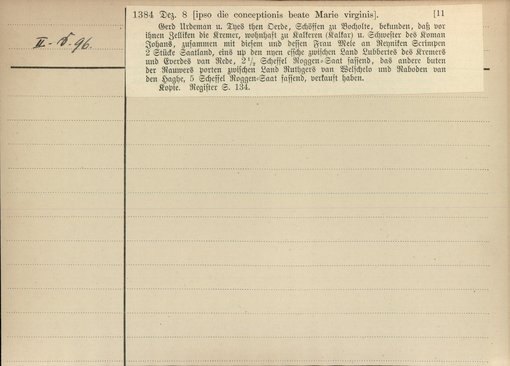 II-15-96.
1384 Dez. 8 [ipso die conceptionis beate Marie virginis]. [11
Gerd Urdeman u. Tyes then Oerde, Schöffen zu Bocholte, bekunden, daß vor
ihnen Zelliken die Kremer, wohnhaft zu Kalkeren (Kalkar) u. Schwester des Koman
Johans, zusammen mit diesem und dessen Frau Mele an Reyniken Scrimpen
2 Stücke Saatland, eins up den nyen essche zwischen Land Lubbertes des Kremers
und Everdes van Rede, 2 1/2 Scheffel Roggen-Saat fassend, das andere buten
der Nauwers porten zwischen Land Ruthgers van Welschelo und Raboden van
den Haghe, 5 Scheffel Roggen-Saat fassend, verkauft haben.
Kopie. Register S. 134.